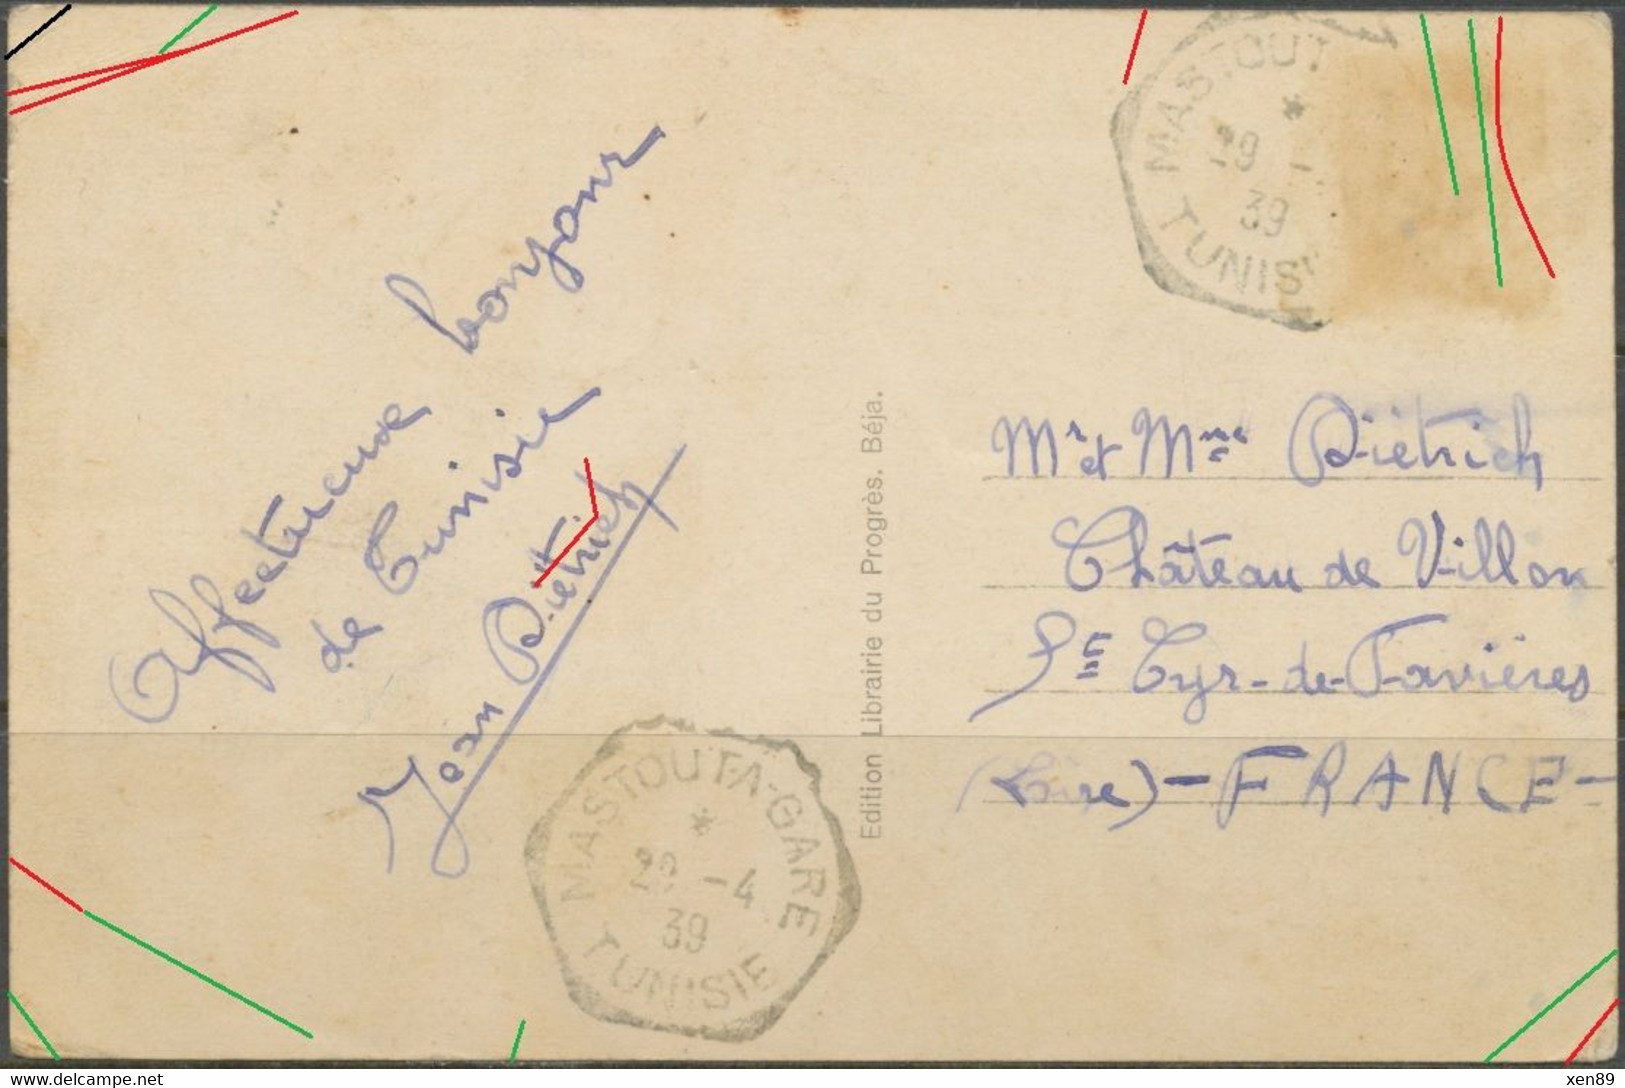 Affectueux bonjour
de Tunisie
Jean Diétrich
MASTOUTA-GARE
*
29 -4
39
TUNISIE
Edition Librairie du Progrès. Béja.
MASTOUT
*
29 -
39
TUNISI
Mr et Mme Diétrich
Château de Villon
St Cyr-de-Favières
(Loire) - FRANCE -
www.delcampe.net
xen89